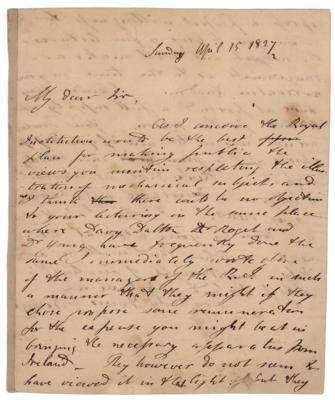 Sunday April 15 1827
My dear Sir,
As I conceive the Royal
Institution would be the best
plan for making public the
views you mention respecting the illus
tration of mechanical subjects and
as I think there could be no objection
to your lecturing in the same place
where Davy Dalton Dr Roget and
Dr Young have frequently done the
same I immediately wrote to one
of the managers of the R.I. in such
a manner that they might if they
chose propose some remuneration
for the expense you might be at in
bringing the necessary apparatus from
Ireland – They however do not seem to
have viewed it in that light but they